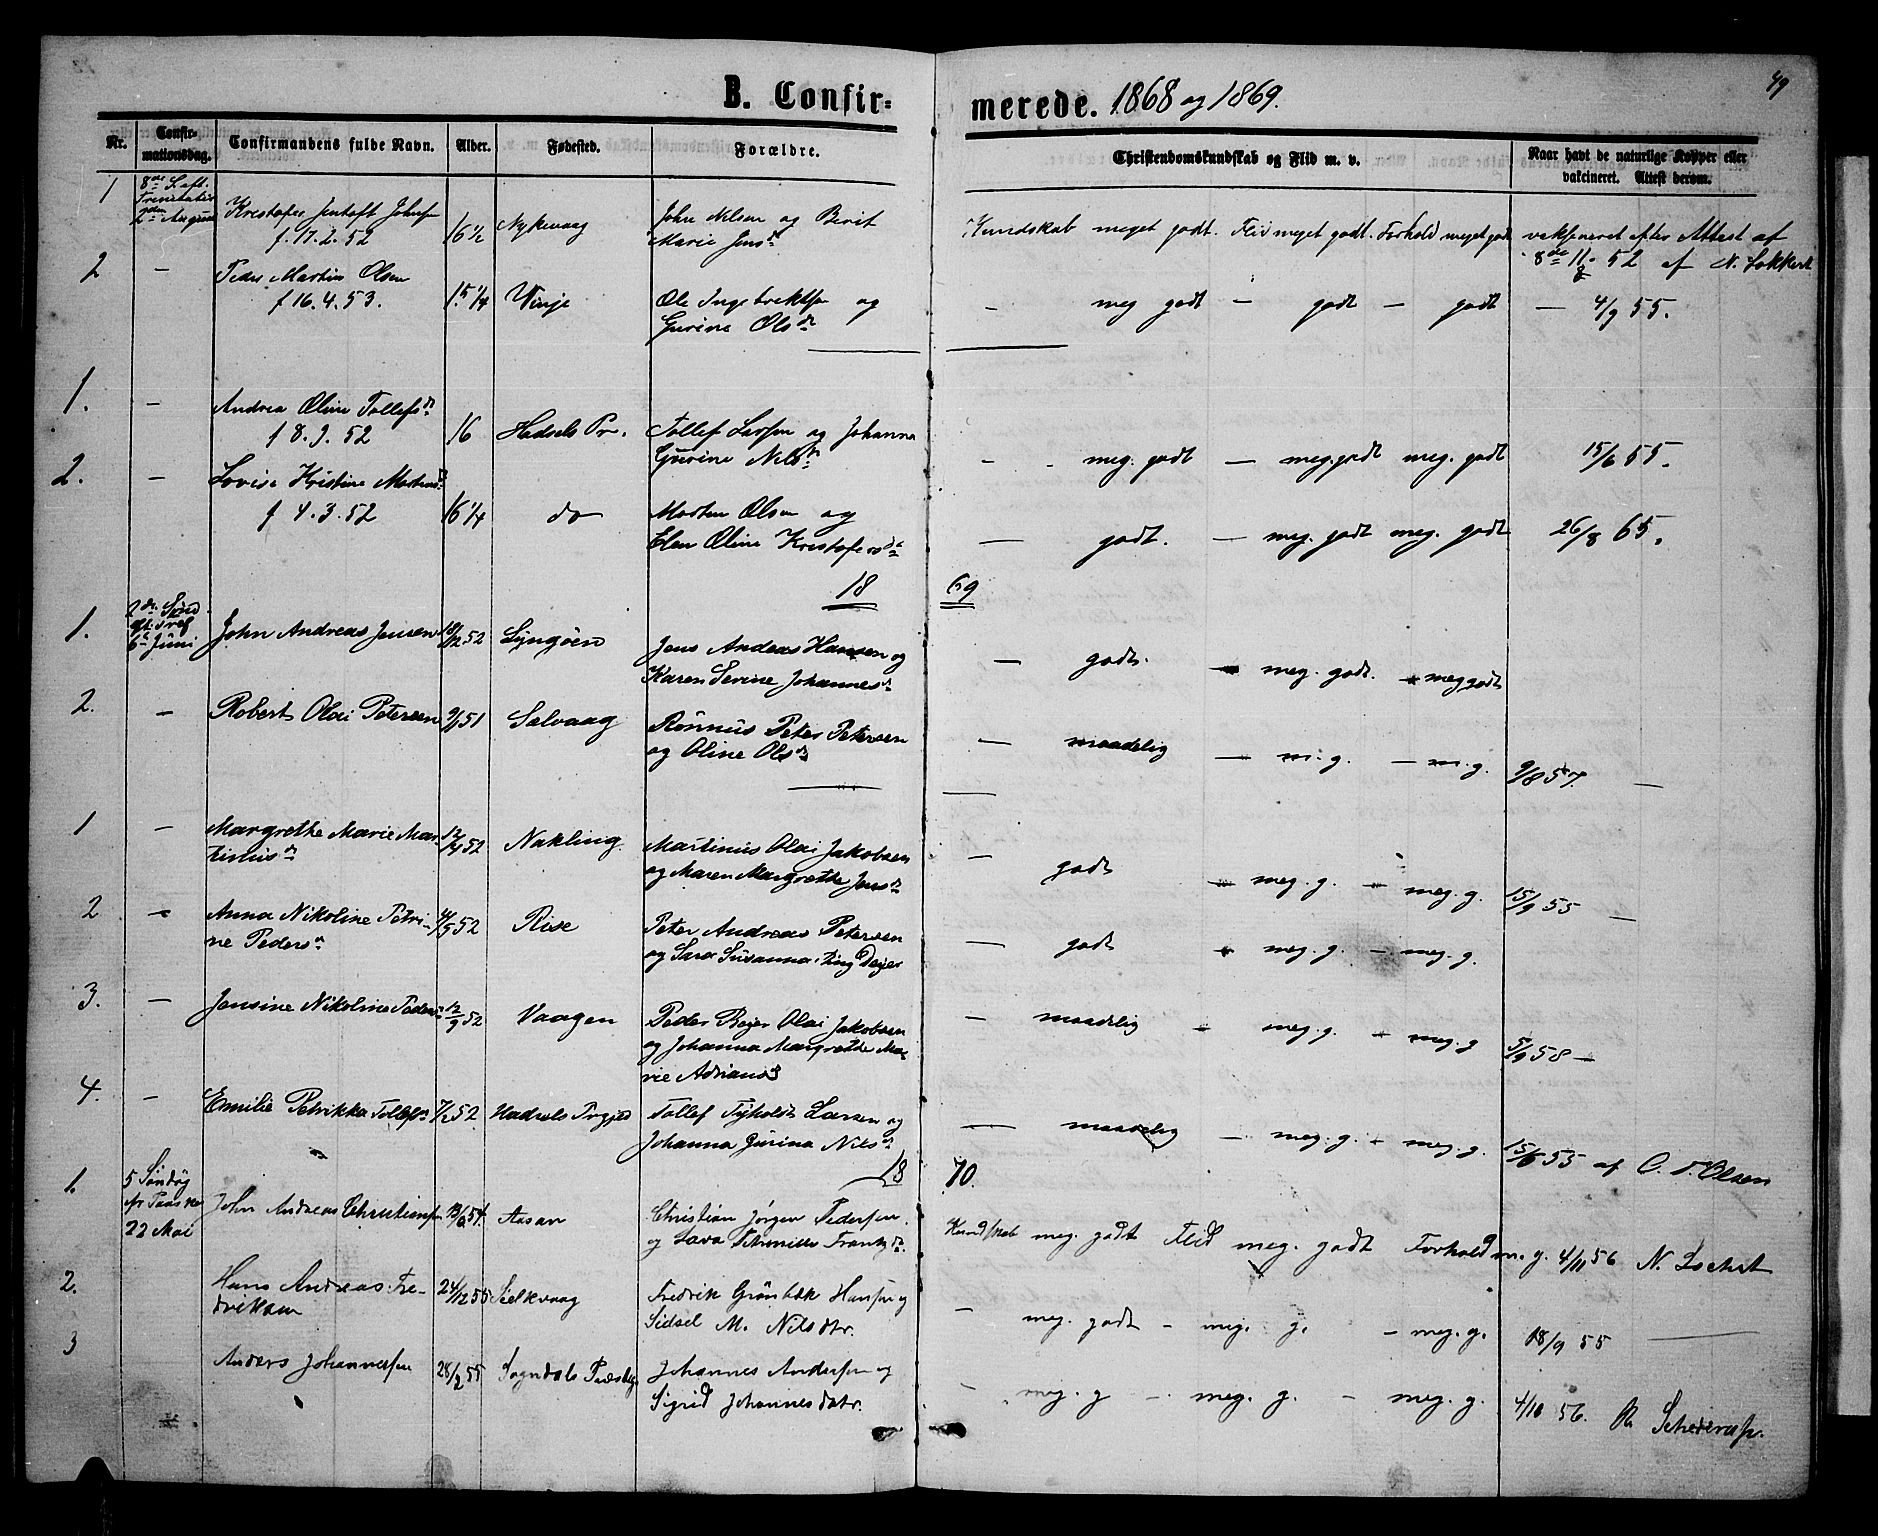 49
B. Confirmerede. 1868 og 1869.
Nr. Confirmationsdag. Confirmandens fulde Navn. Alder. Fødested. Forældre. Christendomskundskab og Flid m. v. Naar havt de naturlige Kopper eller vakcineret. Attest derom.
1 8de S. eft. Kristofer Jentoft Johns 16 1/2 Nykvaag John Nilsen og Berit Kundskab meget godt. Flid meget godt. Forhold meget godt vaksineret efter Attest af
Trinitatis f. 17.2.52 Marie Jensd 52 af N.
2 — Peder Martin Olsen 15 1/4 Vinje Ole og — meg godt — godt — godt — 4/9 55.
f 16.4.53. Gurine Olsdr
1. — Andrea Oline Tollefsdr 16 Hadsels Pr. Tollef Larsen og Johanna — meg. godt — meg. godt meg. godt 15/6 55.
f 8.9.52 Gurine Nilsdr
2. — Lovise Kristine Mortensdr 16 1/4 do Morten Olsen og — godt. — meg. godt meg. godt 26/8 65.
f 4.3.52 Elen Oline Kristofersdr
18 69
1. 2den Sønd
6te Juni John Andreas Jensen 18/12 52 Lyngøen Jens Andreas Hansen og — godt. — meg. godt. — meg godt
Karen Serine Johannesdr
2. — Robert Olai Petersen 9/1 51 Selvaag Rønnus Peter Petersen — maadelig — m. g. — m. g. 9/8 57. —
og Oline Olsdr
1 — Margrethe Marie Mar- 12/4 52 Nakling Martinus Olai Jakobsen — godt — meg. g. — meg. g. 15/9 55 —
tinusdr og Maren Margrethe Jensdr
2 — Anna Nikoline Petri- 4/5 52 Rise Peter Andreas Petersen — godt — meg. g. — meg. g.
ne Pedersdr og Sara Susanna
3. — Jensine Nikoline Pedersdr 12/9 52 Vaagen Peder Bejer Olai Jakobsen — maadelig — meg. g. — meg. g 5/9 58 —
og Johanna Margrethe Ma-
rie Adriansd
4. — Emilie Petrikka Tollefsdr 7/2 52. Hadsels Prgjed Tollef Tyholdt Larsen og — maadelig — meg. g. — meg. g. 15/6 55 af C. T. Olsen
Johanna Gurina Nilsdr
18 70.
1. 5 Søndag
22 Mai John Andreas Christiansen Aasan Christian Jørgen Pedersen Kundskab meg. godt Flid meg. godt Forhold m. g. 4/11 56 N.
og
2. Hans Andreas Fre- 24/12 55 Seelkvaag Fredrik Grønbek Hansen og — meg. godt — meg. g. — meg. g. 18/9 55 —
driksen Sidsel M. Nilsdtr.
3 Anders Johannessen 28/2 55 Sogndals Præstegj Johannes Andersen og — meg. g — meg. g. — meg. g. 4/10 56.
Sigrid Johannesdatr.